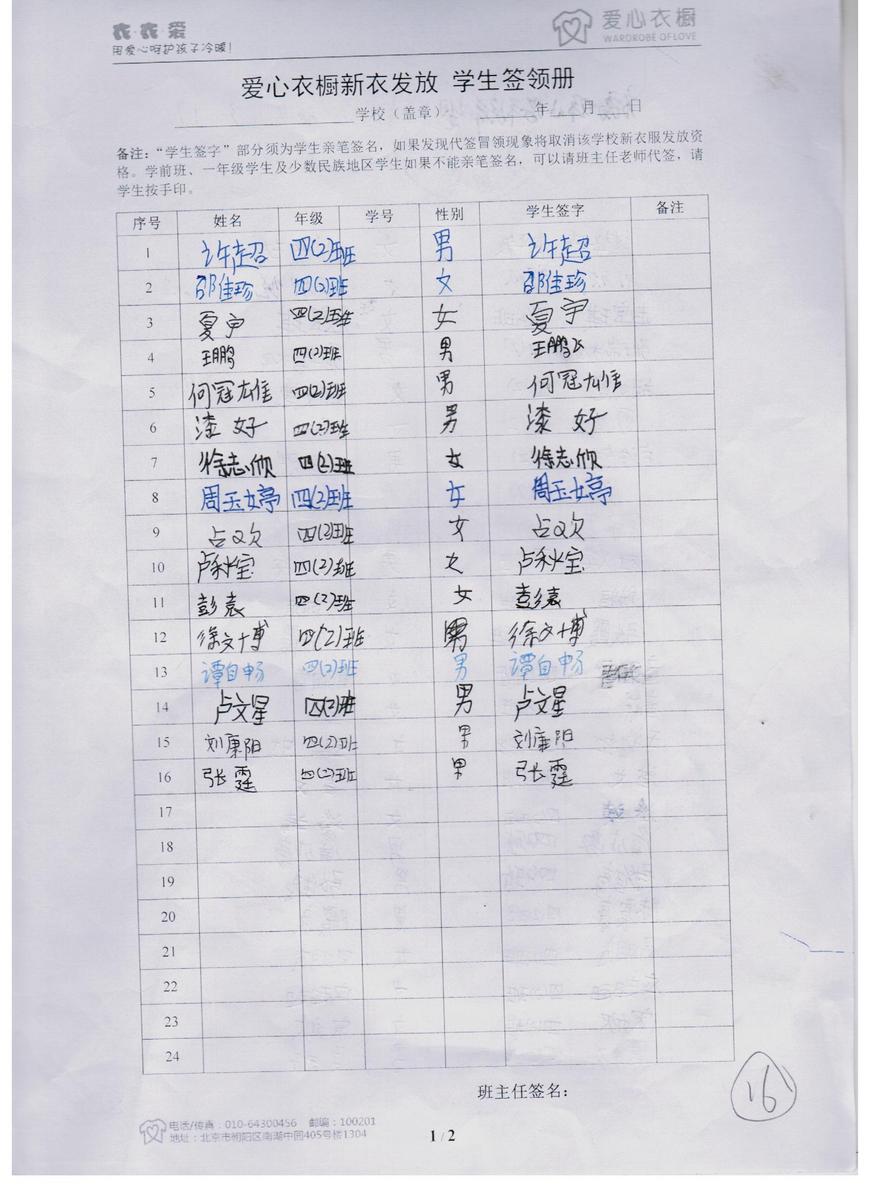 衣·衣·爱
用爱心呵护孩子冷暖!
爱心衣橱
WARDROBE OF LOVE
爱心衣橱新衣发放 学生签领册
学校（盖章） 年 月 日
备注：“学生签字”部分须为学生亲笔签名，如果发现代签冒领现象将取消该学校新衣服发放资
格。学前班、一年级学生及少数民族地区学生如果不能亲笔签名，可以请班主任老师代签，请
学生按手印。
序号 姓名 年级 学号 性别 学生签字 备注
1 许超 四(2)班 男 许超
2 邵佳珍 四(2)班 女 邵佳珍
3 夏宇 四(2)班 女 夏宇
4 王鹏 四(2)班 男 王鹏飞
5 何冠雄 四(2)班 男 何冠雄
6 漆好 四(2)班 男 漆好
7 徐志欣 四(2)班 女 徐志欣
8 周玉婷 四(2)班 女 周玉婷
9 占欢 四(2)班 女 占欢
10 卢秋宝 四(2)班 女 卢秋宝
11 彭袁 四(2)班 女 彭袁
12 徐文博 四(2)班 男 徐文博
13 谭自畅 四(2)班 男 谭自畅
14 卢文星 四(2)班 男 卢文星
15 刘康阳 四(2)班 男 刘康阳
16 张霆 四(2)班 男 张霆
17
18
19
20
21
22
23
24
班主任签名：
16
电话/传真：010-64300456 邮编：100201
地址：北京市朝阳区南湖中园405号楼1304
1 / 2